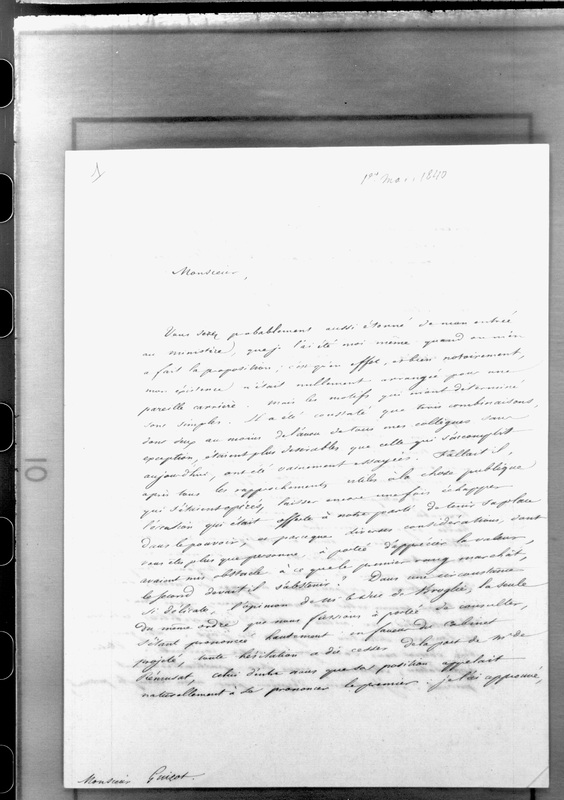 1er Mars 1840
Monsieur,
Vous serez probablement aussi étonné de mon entrée
au ministère, que je l'ai été moi même quand on m'en
a fait la proposition; c'est qu'en effet, et bien notoirement,
mon existence n'était nullement arrangée pour une
pareille carrière. Mais les motifs qui m'ont déterminé
sont simples. Il a été constaté que trois combinaisons,
dont deux au moins de l'aveu de tous mes collègues sans
exception, étaient plus désirables que celle qui s'accomplit
aujourd'hui, ont été vainement essayées. Fallait il,
après tous les rapprochements utiles à la chose publique
qui s'étaient opérés, laisser encore une fois échapper
l'occasion qui était offerte à notre parti de tenir sa place
dans le pouvoir; et parceque diverses considérations, dont
vous êtes plus que personne à portée d'apprécier la valeur,
avaient mis obstacle à ce que le premier rang marchât,
le second devait il s'abstenir? Dans une circonstance
si délicate, l'opinion de M. le Duc de Broglie, la seule
du même ordre que nous fussions à portée de consulter,
s'étant prononcée hautement en faveur du Cabinet
projeté, toute hésitation a dû cesser de la part de Mr de
Rémusat, celui d'entre nous que sa position appelait
naturellement à se prononcer le premier. Je l'ai approuvé,
Monsieur Guizot.
10